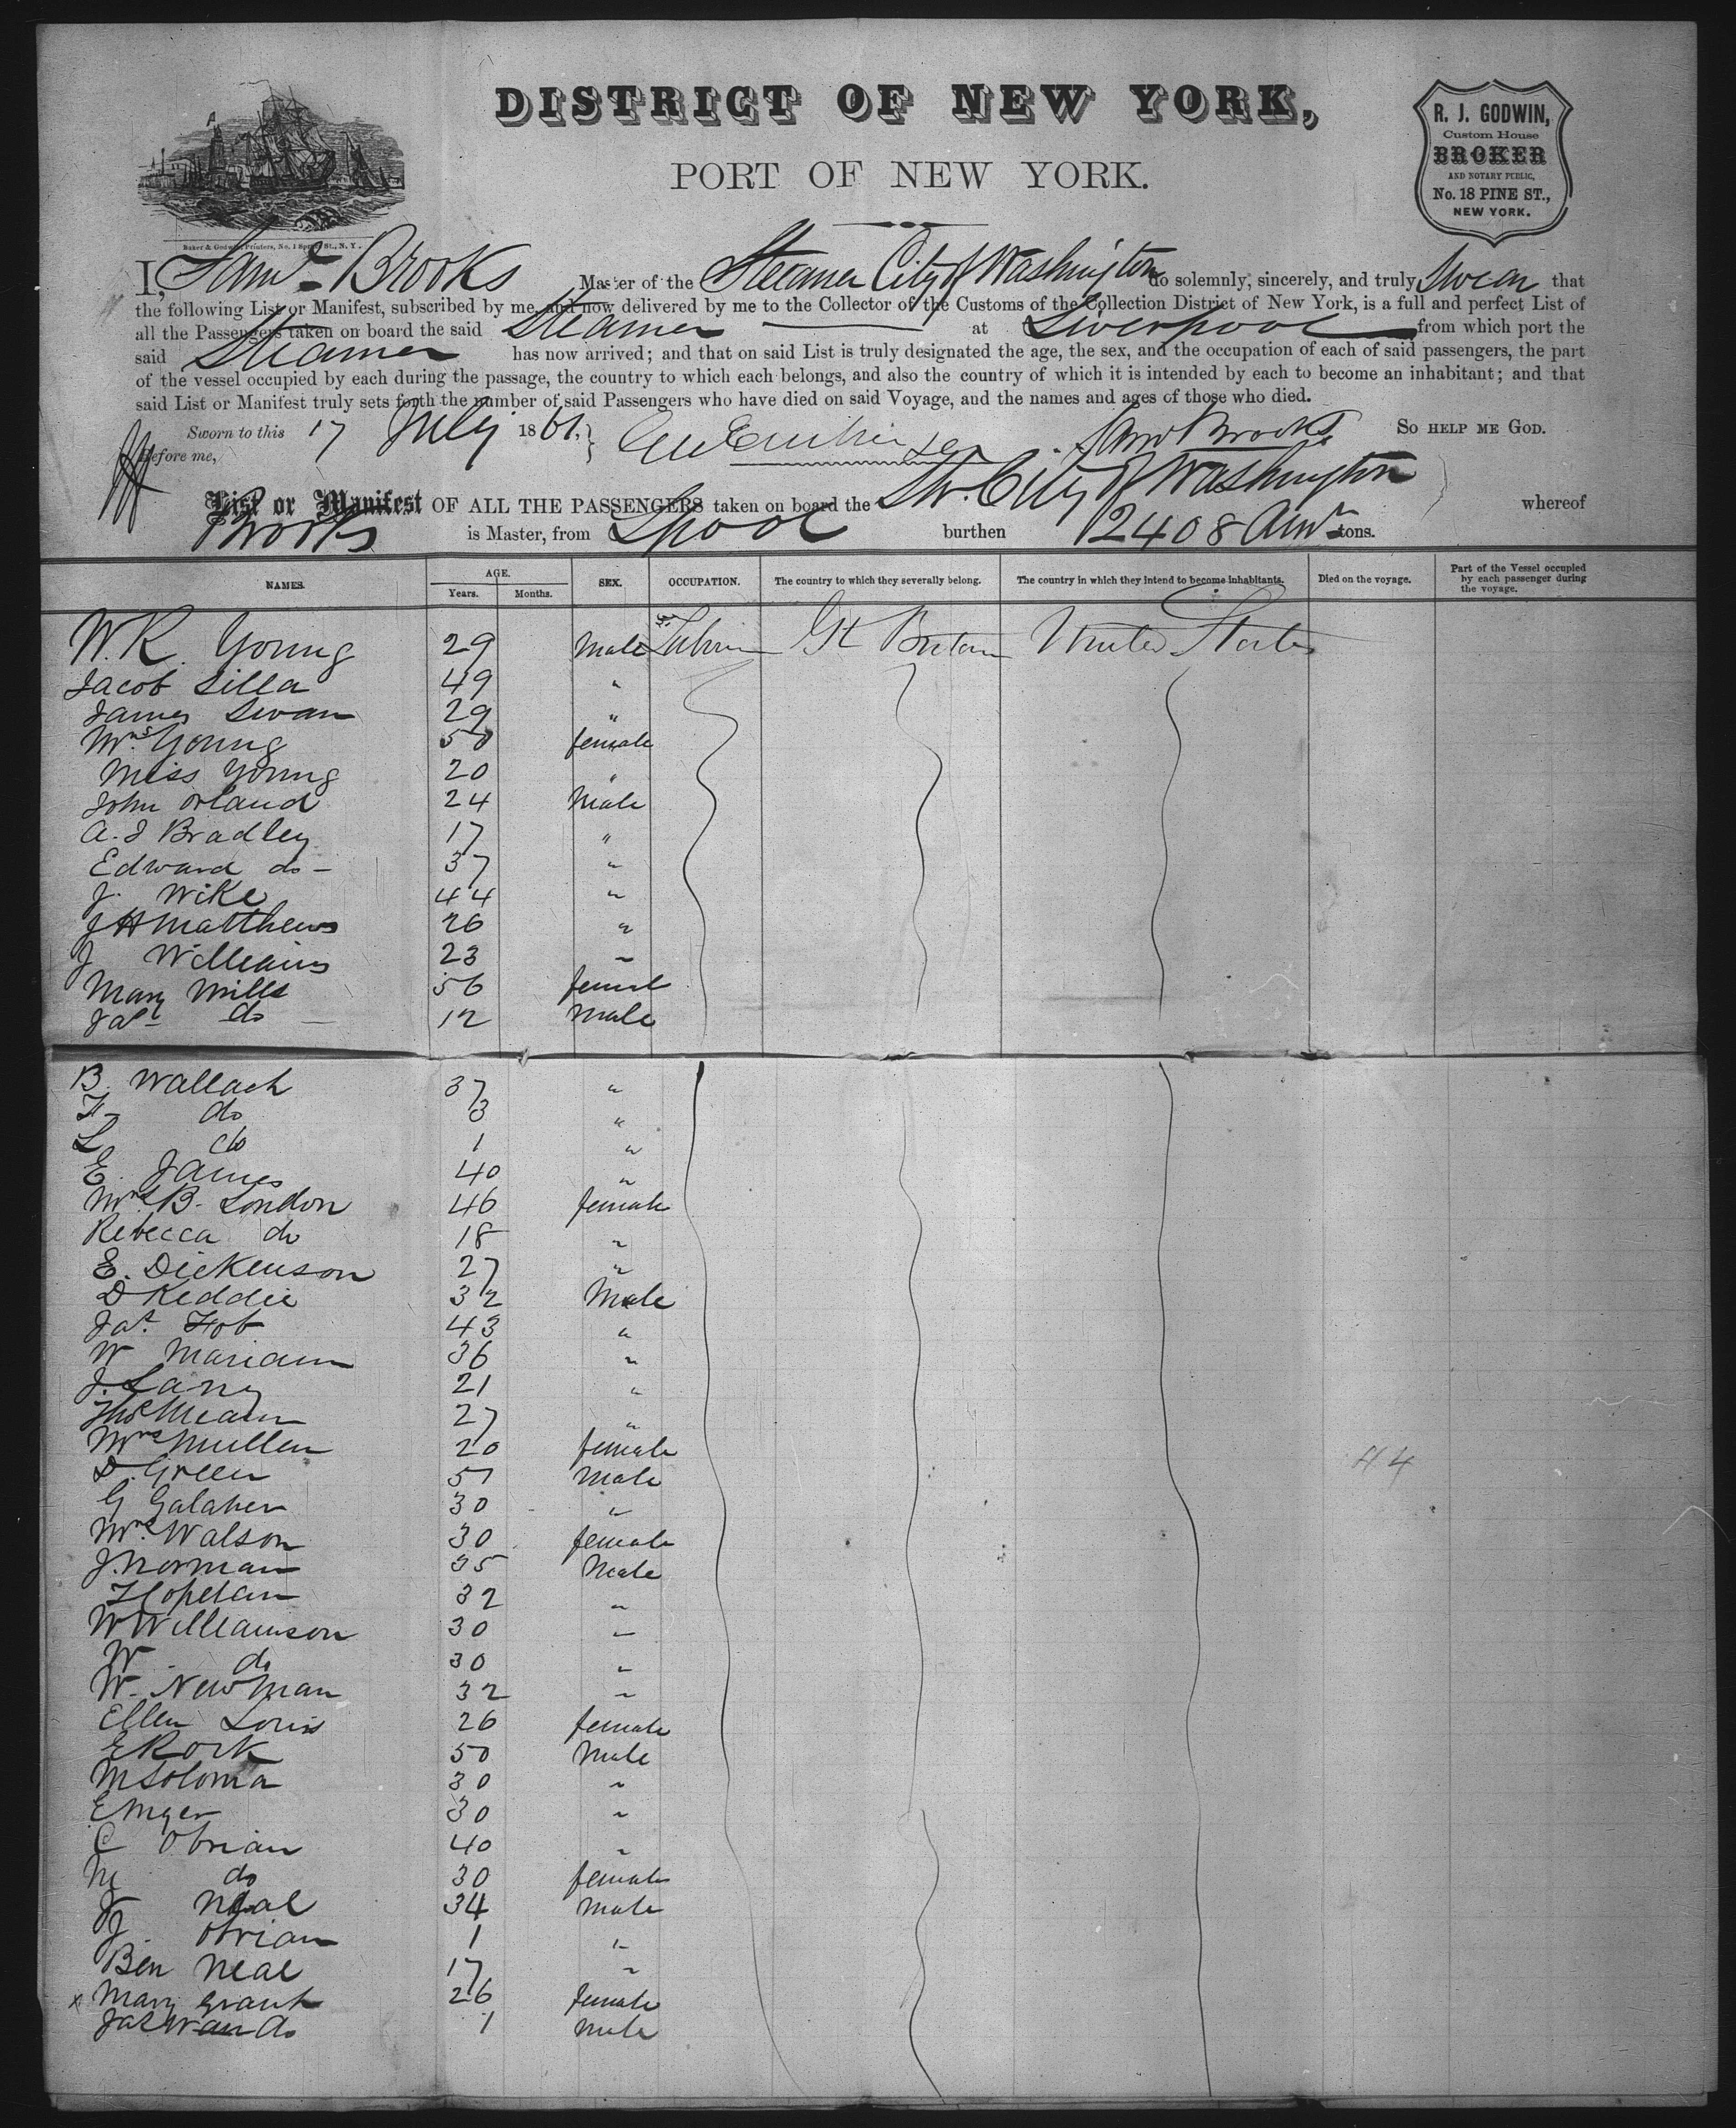 DISTRICT OF NEW YORK,
PORT OF NEW YORK.
R. J. GODWIN,
Custom House
BROKER
AND NOTARY PUBLIC,
No. 18 PINE ST.,
NEW YORK.
Baker & Godwin, Printers, No. 1 Spruce St., N. Y.
I, Saml Brooks Master of the Steamer City of Washington do solemnly, sincerely, and truly Swear that
the following List or Manifest, subscribed by me, and now delivered by me to the Collector of the Customs of the Collection District of New York, is a full and perfect List of
all the Passengers taken on board the said Steamer at Liverpool from which port the
said Steamer has now arrived; and that on said List is truly designated the age, the sex, and the occupation of each of said passengers, the part
of the vessel occupied by each during the passage, the country to which each belongs, and also the country of which it is intended by each to become an inhabitant; and that
said List or Manifest truly sets forth the number of said Passengers who have died on said Voyage, and the names and ages of those who died.
Sworn to this 17 July 1861, Saml Brooks SO HELP ME GOD.
Before me,
List or Manifest OF ALL THE PASSENGERS taken on board the Str. City of Washington whereof
Brooks is Master, from Lpool burthen 2408 tons.
NAMES. AGE. Years. Months. SEX. OCCUPATION. The country to which they severally belong. The country in which they intend to become inhabitants. Died on the voyage. Part of the Vessel occupied by each passenger during the voyage.
W. R. Young 29 Male Gt Britain United States
Jacob Silla 49 "
James Swan 29 "
Mrs Young 50 female
Miss Young 20 "
John Orland 24 Male
A. J Bradley 17 "
Edward do - 37 "
J. Wike 44 "
J H Matthews 26 "
J Williams 23 "
Mary Mills 56 female
Jas do 12 Male
B. Wallach 37 "
F do 3 "
L do 1 "
E. James 40 "
Mrs B. London 46 female
Rebecca do 18 "
E. Dickenson 27 "
D Keddie 32 Male
Jas. Hob 43 "
W Mariann 36 "
J. Lany 21 "
Thos Mearn 27 "
Mrs Mullen 20 female
D. Green 51 Male
G Galaher 30 "
Mrs Walson 30 female
J. Norman 35 Male
H Copelan 32 "
W Williamson 30 "
W do 30 "
W. Newman 32 "
Ellen Loris 26 female
E Rork 50 Male
M Soloma 30 "
E Myer 30 "
C Obrian 40 "
M do 30 female
J Neal 34 Male
J Obrian 1 "
Ben Neal 17 "
x Mary Grant 26 female
Jas do 1 Male
44